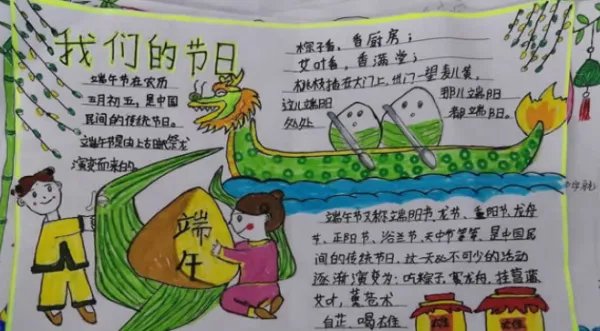 我们的节日
端午节在农历
五月初五，是中国
民间的传统节日。
端午节是由上古时祭龙
演变而来的。
粽子香，香厨房；
艾叶香，香满堂；
桃枝插在大门上，出门一望麦儿黄，
这儿端阳 那儿端阳
处处 都端阳。
端
午
端午节又称端阳节，龙节、重阳节，龙舟
节，正阳节、浴兰节、天中节等等，是中国民
间的传统节日，这一天必不可少的活动
逐渐演变为：吃粽子，赛龙舟，挂菖蒲
艾叶，薰苍术
白芷，喝雄黄
雄黄
雄黄